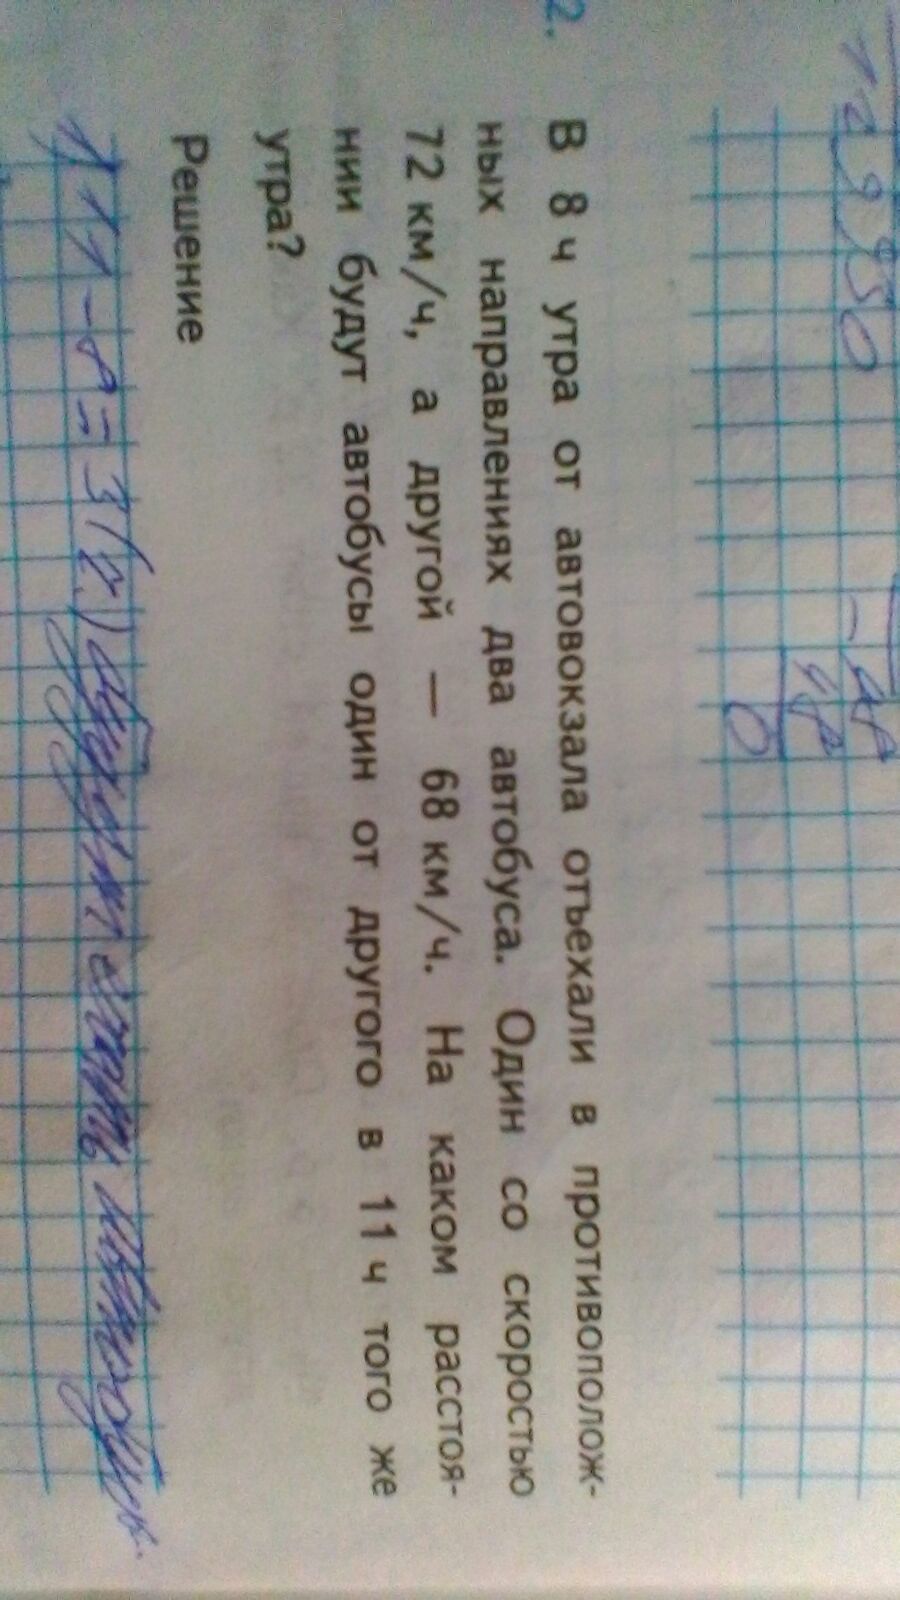 12950
- 48
48
0
2. В 8 ч утра от автовокзала отъехали в противополож-
ных направлениях два автобуса. Один со скоростью
72 км/ч, а другой — 68 км/ч. На каком расстоя-
нии будут автобусы один от другого в 11 ч того же
утра?
Решение
1) 11 - 8 = 3 (ч.) будут ехать автобусы.